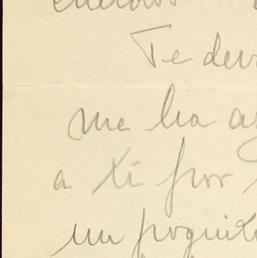 Te dev
me ha a
a ti por
un poquit